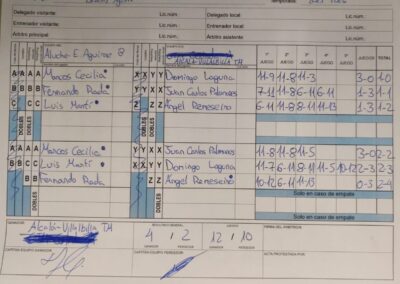 Delegado visitante: Lic.núm.: Delegado local: Lic.núm.:
Entrenador visitante: Lic.núm.: Entrenador local: Lic.núm.:
Árbitro principal: Lic.núm.: Árbitro asistente Lic.núm.:
Aluche E. Aguirre
1º JUEGO 2º JUEGO 3º JUEGO 4º JUEGO 5º JUEGO JUEGOS TOTAL
A A A Marcos Cecilia X Y Y Domingo Laguna 11-9 11-8 11-3 3-0 1-0
B B Fernando Rada X X Juan Carlos Palomares 7-11 11-8 6-11 6-11 1-3 1-1
C Luis Martí Z Angel Remeseiro 6-11 11-8 8-11 11-13 1-3 1-2
DOBLES DOBLES
A A C C Marcos Cecilia Juan Carlos Palomares 11-8 11-8 11-5 3-0 2-2
B B Luis Martí Domingo Laguna 11-7 6-11 8-11 11-5 10-12 2-3 2-3
Fernando Rada Z Z Ángel Remeseiro 10-12 6-11 11-13 0-3 2-4
DOBLES DOBLES Solo en caso de empate
Solo en caso de empate
Alcalá-Villalbilla TM 4 / 2 12 / 10
GANADOR GANADOR PERDEDOR GANADOR PERDEDOR
CAPITÁN EQUIPO GANADOR CAPITÁN EQUIPO PERDEDOR ACTA PROTESTADA POR: